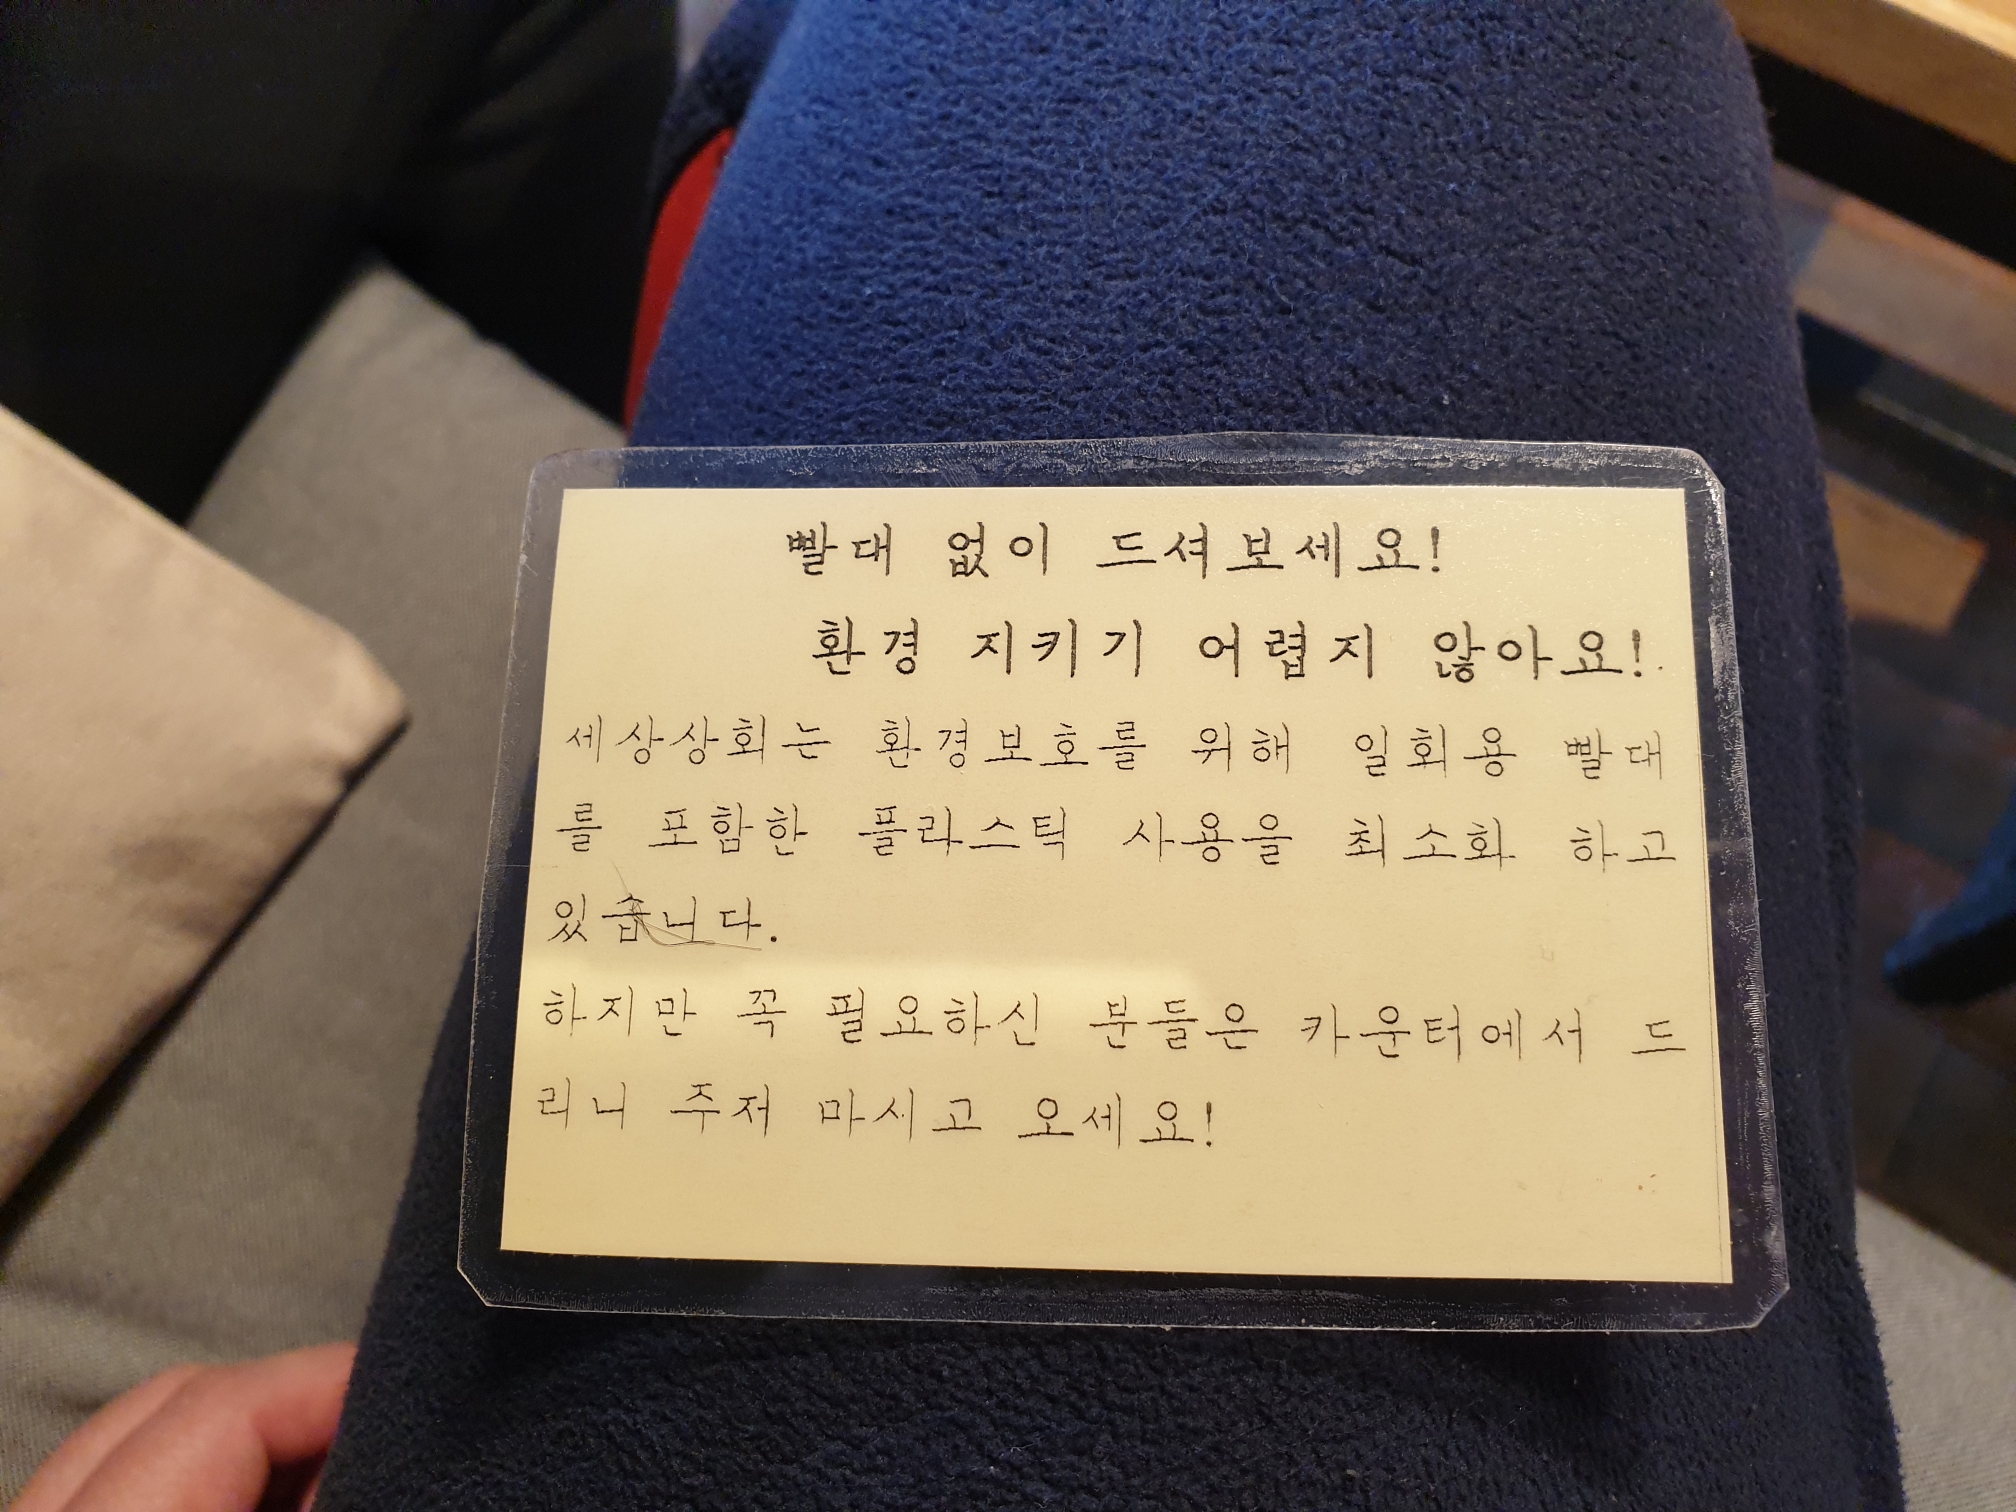 빨대 없이 드셔보세요!
환경 지키기 어렵지 않아요!
세상상회는 환경보호를 위해 일회용 빨대
를 포함한 플라스틱 사용을 최소화 하고
있습니다.
하지만 꼭 필요하신 분들은 카운터에서 드
리니 주저 마시고 오세요!